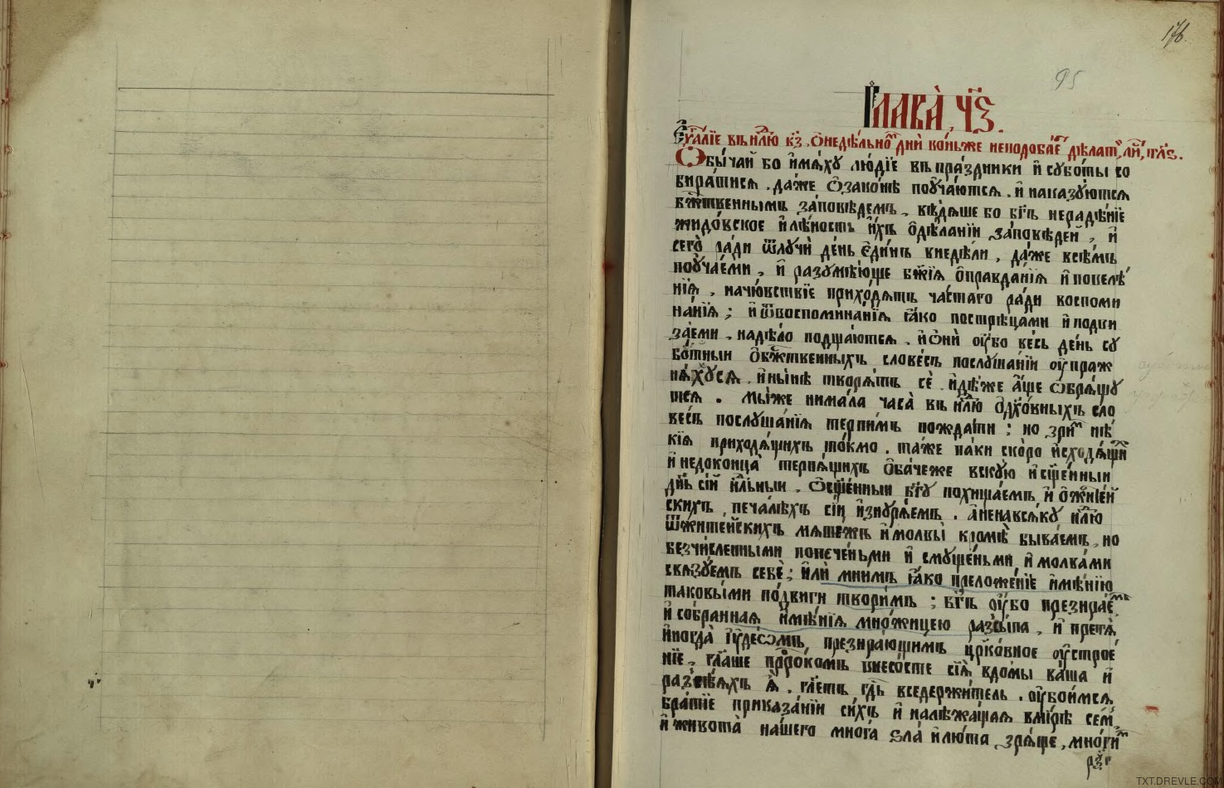 176
95
Глава̀ ч҃з.
вънл҃ю к҃з. ѡнедѣльно дни́ кои́ же неподобае дѣлат
Ѡбычаи бо и҆мѧ́ху лю́дїе въпра́здники и҆ субо́ты со
бира́тисѧ. да́же ѿзако́на поꙋча́ютсѧ. и҆ наказꙋ́ютсѧ
бж҃твеннымъ за́повѣдемъ. вѣ́дѧше бо бг҃ъ нераде́нїе
жидо́вское и҆лѣ́ность и҆́хъ ѡ҆дѣ́ланїи за́повѣдеи, и҆
сего̀ ра́ди ѿлꙋчѝ де́нь є҆ди́нъ внедѣ́ли, да́же всѣ́мъ
поꙋча́еми, и҆ разꙋмѣ́юще бж҃їѧ ѡ҆правда́нїѧ и҆ повелѣ
нїѧ. начю́вствїе прихо́дѧтъ ча́стаго ра́ди воспоми
на́нїѧ; и҆ ѿвоспомина́нїѧ ꙗ҆́ко пострѣца́ми и҆ подви
за́еми. надѣ́ло подща́ютсѧ. и҆ѻ҆нѝ ᲂу҆́бо ве́сь де́нь сꙋ
бо́тныи ѡ҆бж҃твенныхъ слове́съ послꙋша́нїи ᲂу҆праж
нѧ́хꙋсѧ. и҆ны́нѣ творѧ́тъ сѐ. и҆дѣ́же а҆́ще ѡ҆брѧ́щꙋ
тсѧ. мы́же нима́ла часа̀ внл҃ю ѡ҆дх҃о́вныхъ сло
ве́съ послꙋша́нїѧ те́рпимъ пожда́ти; но зри́м нѣ́
кїѧ приходѧ́щихъ то́кмо. та́же па́ки ско́ро и҆сходѧ́щи
и҆ недоконца̀ терпѧ́щихъ ѻ҆ба́чеже вскꙋ́ю и҆ сщ҃е́нныи
дн҃ь сїи нл҃ьныи. ѡ҆сщ҃е́нныи бг҃ꙋ похища́емъ, и҆ ѡ҆жите́й
скихъ печа́лѣхъ сїи и҆знꙋрѧ́емъ. а҆ненавсѧ́кꙋ нл҃ю
ѿжите́йскихъ мѧте́жъ и҆молвы̀ кромѣ̀ быва́емъ, но
безчи́сленными попече́ньми и҆ смꙋще́ньми и҆ молва́ми
свѧзꙋ́емъ себѐ; и҆лѝ мни́мъ ꙗ҆́ко преложе́нїе и҆мѣ́нїю
таковы́ми по́двиги твори́мъ; бг҃ъ ᲂу҆́бо презира́е
и҆ собра́ннаѧ и҆мѣ́нїѧ мно́жицею разсы́па, и҆ претѧ̀
и҆ногда̀ і҆ꙋде́ѡмъ, презира́ющимъ црк҃о́вное ᲂу҆строе
нїе. гл҃аше прⷪ҇ро́комъ внесо́сте сїѧ̀ вдо́мы ва́ша и҆
развѣ́ѧхъ ѧ҆̀. гл҃етъ гдⷭ҇ь вседержи́тель. ᲂу҆бои́мсѧ
бра́тїе приказа́нїи си́хъ и҆ належа́щаѧ вми́рѣ се́м
и҆ живота̀ на́шего мно́га ѕла̀ и҆ лю́та зрѧ́ще, мно́ги
TXT.DREVLE.COM